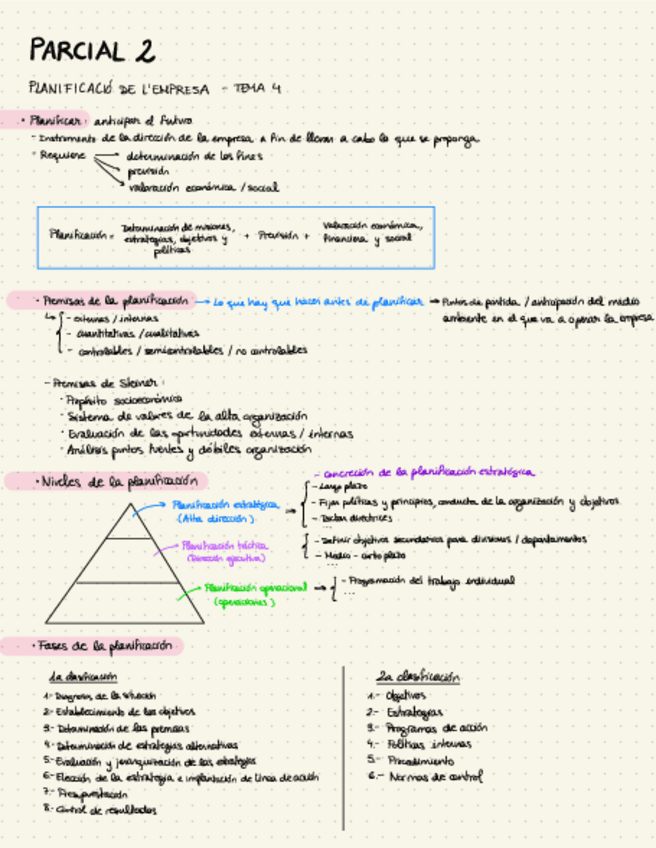 PARCIAL 2
PLANIFICACIÓ DE L'EMPRESA - TEMA 4
· Planificar: anticipar el futuro
- Instrumento de la dirección de la empresa a fin de llevar a cabo lo que se proponga
· Requiere
determinación de los fines
previsión
valoración económica / social
Planificación = Determinación de misiones, estrategias, objetivos y políticas + Previsión + Valoración económica, financiera y social
· Premisas de la planificación → Lo que hay que hacer antes de planificar → Puntos de partida / anticipación del medio
ambiente en el que va a operar la empresa
- externas / internas
- cuantitativas / cualitativas
- controlables / semicontrolables / no controlables
- Premisas de Steiner:
· Propósito socioeconómico
· Sistema de valores de la alta organización
· Evaluación de las oportunidades externas / internas
· Análisis puntos fuertes y débiles organización
· Niveles de la planificación
- concreción de la planificación estratégica
Planificación estratégica
(Alta dirección)
- Largo plazo
- Fijar políticas y principios, conducta de la organización y objetivos
- Dictar directrices
...
Planificación táctica
(Dirección ejecutiva)
- Definir objetivos secundarios para divisiones / departamentos
- Medio - corto plazo
...
Planificación operacional
(operaciones)
- Programación del trabajo individual
...
· Fases de la planificación
1a clasificación
1- Diagnosis de la situación
2- Establecimiento de los objetivos
3- Determinación de las premisas
4- Determinación de estrategias alternativas
5- Evaluación y jerarquización de las estrategias
6- Elección de la estrategia e implantación de línea de acción
7- Presupuestación
8- Control de resultados
2a clasificación
1.- Objetivos
2.- Estrategias
3.- Programas de acción
4.- Políticas internas
5.- Procedimiento
6.- Normas de control